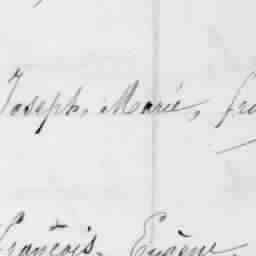 Joseph, Marie, fra
François, Eugène,